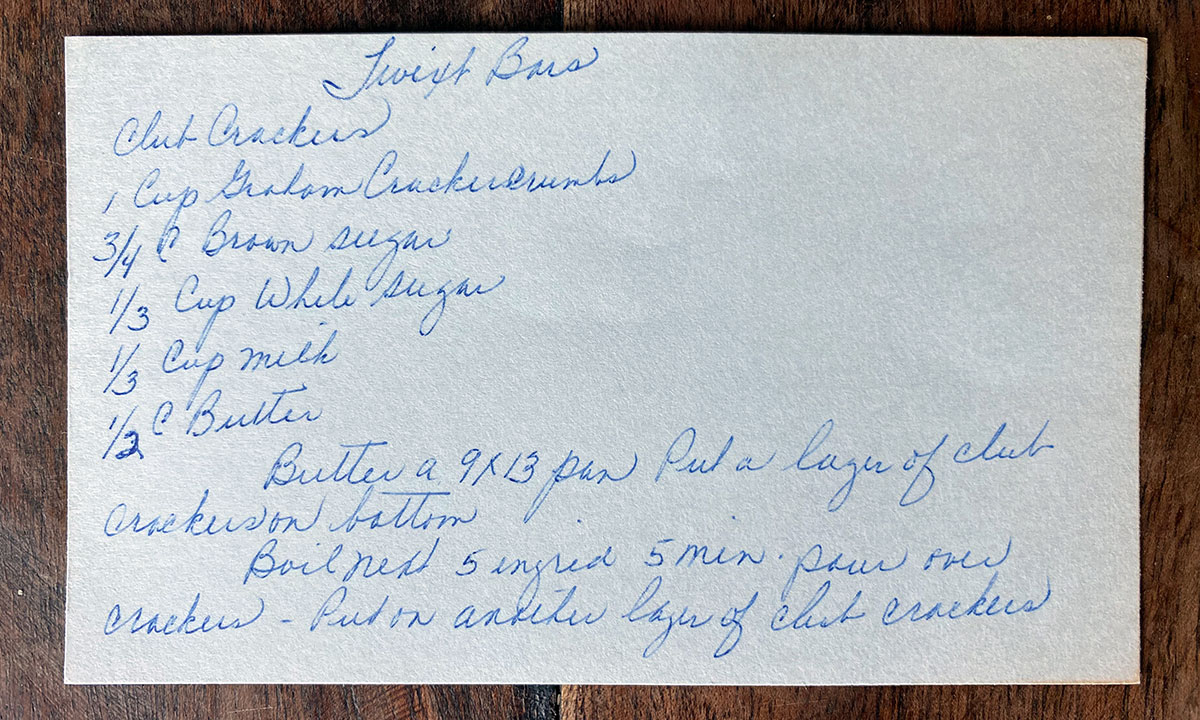 Twixt Bars
Club Crackers
1 Cup Graham Crackercrumbs
3/4 C Brown sugar
1/3 Cup White sugar
1/3 Cup milk
1/2 C Butter
Butter a 9x13 pan Put a layer of club
crackers on bottom
Boil next 5 ingred 5 min. pour over
crackers - Put on another layer of club crackers